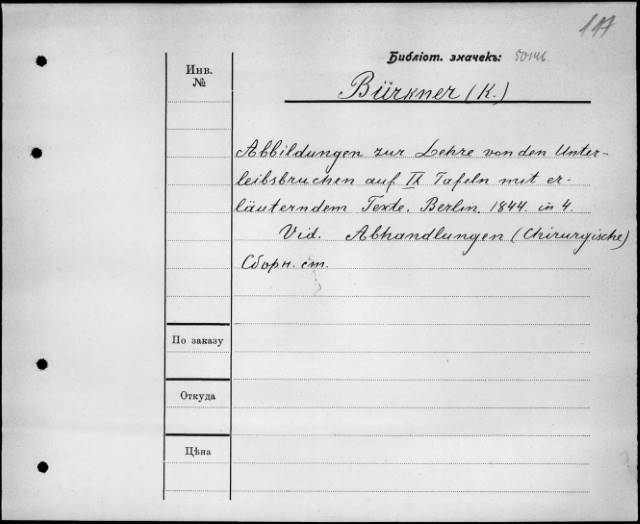 117
Библіот. значекъ: 50146
Инв.
№
Bürkner (K.)
Abbildungen zur Lehre von den Unter-
leibsbruchen auf IX Tafeln mit er-
läuterndem Texte. Berlin. 1844. in 4.
Vid. Abhandlungen (Chirurgische)
Сборн. ст.
По заказу
Откуда
Цѣна